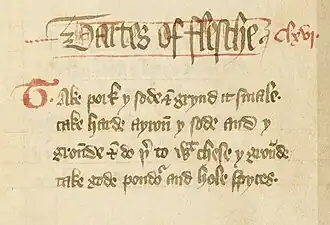 Tartes of flesche. Clxvi.
Take pork y sode & grynd it smale.
take harde ayroun y sode and y
grounde & do þ to wt chese y grounde
take gode poudor and hole spyces.